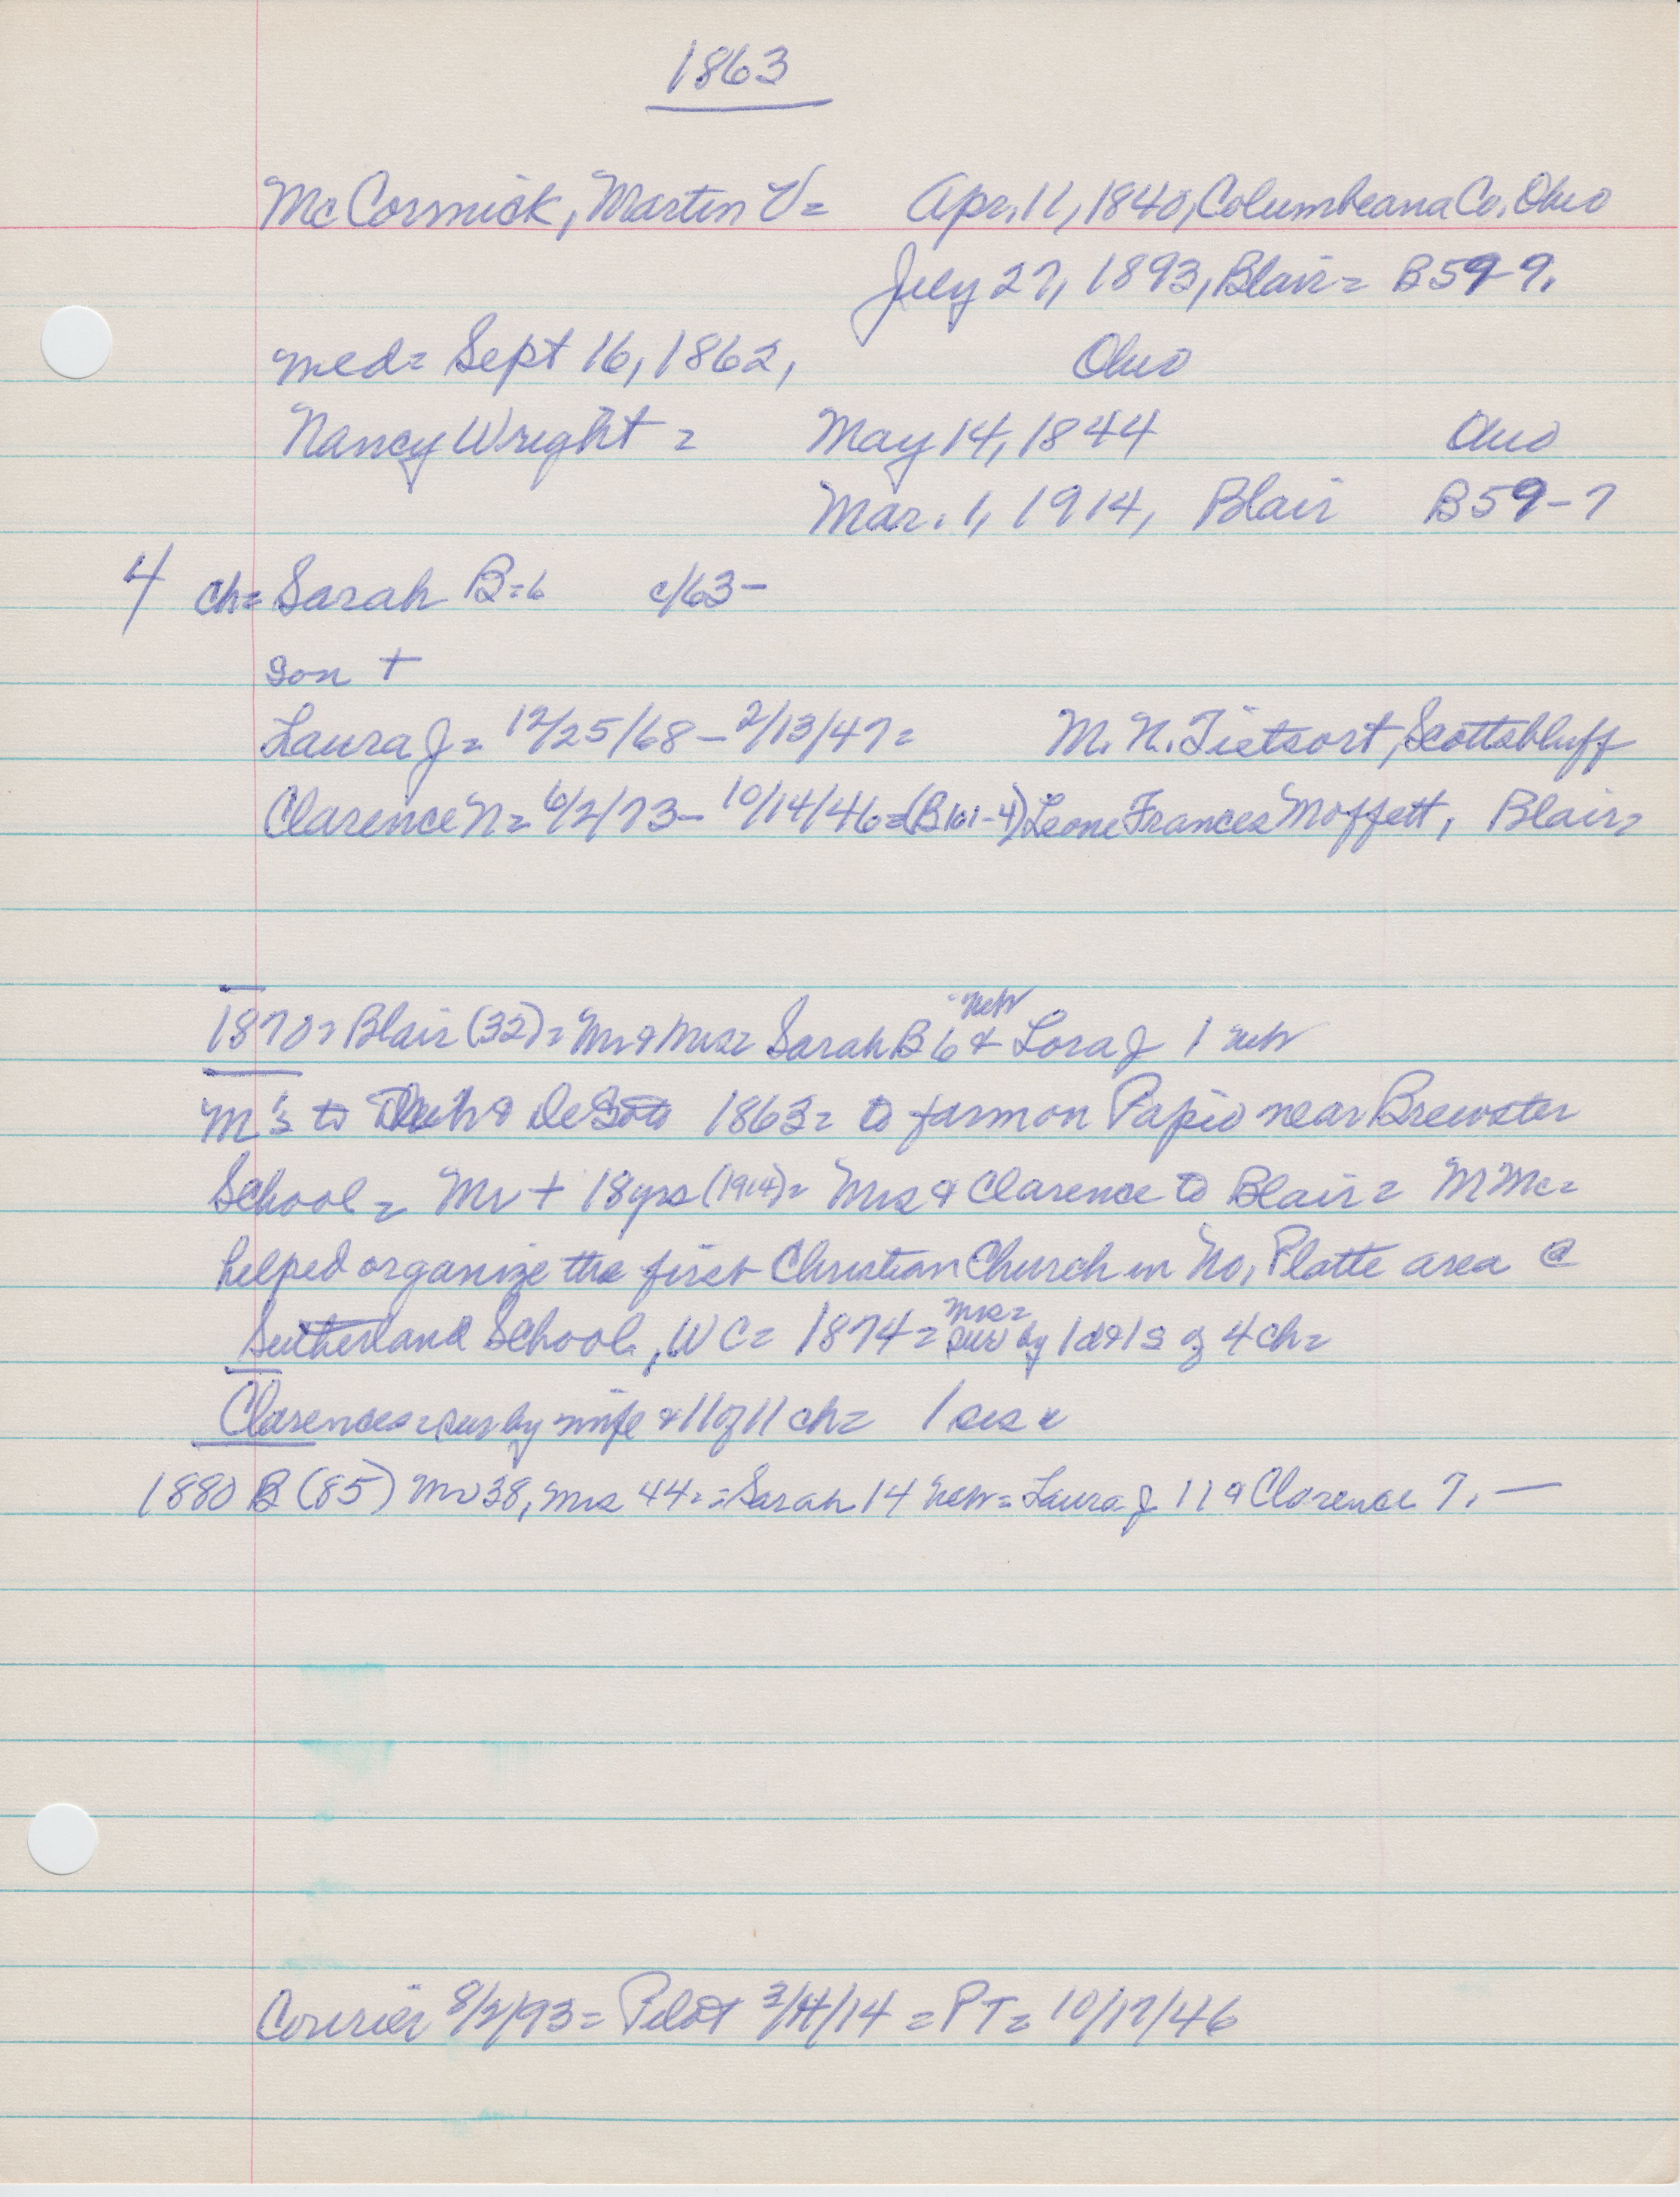 1863
McCormick, Martin V= Apr. 11, 1840, Columbeana Co. Ohio
July 27, 1893, Blair= B59-9.
med= Sept 16, 1862, Ohio
Nancy Wright = May 14, 1844 Ohio
Mar. 1, 1914, Blair B59-7
4 ch= Sarah B=6 c/63-
son +
Laura J= 12/25/68-2/13/47= M. N. Tietsort, Scottsbluff
Clarence N= 6/2/73- 10/14/46=(B161-4) Leone Frances Moffett, Blair=
1870= Blair (32)= Mr & Mrs= Sarah B 6 Neb & Lora J 1 Neb
M's to & DeSoto 1863= to farm on Papio near Brewster
School = Mr + 18yrs (1914)= Mrs & Clarence to Blair= M Mc=
helped organize the first Christian Church in No. Platte area @
Sutherland School, WC= 1874= Mrs= sur by 1d&1s of 4 ch=
Clarences=sur by wife & 11 of 11 ch= 1 sis
1880 B (85) Mr 38, Mrs 44.= =Sarah 14 Neb= Laura J 11 & Clarence 7. —
Courier 8/3/93= Pilot 3/4/14 = PT= 10/17/46